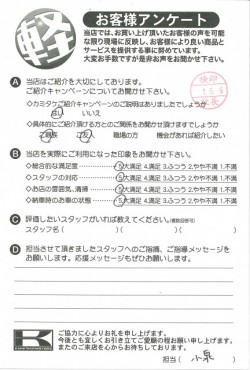 軽
お客様アンケート
当店では、お買い上げ頂いたお客様の声を可能
な限り現場に反映し、お客様により良い商品と
サービスを提供する事に努めています。
大変お手数ですが是非お声をお聞かせ下さい。
A 当店はご紹介を大切にしております。
ご紹介キャンペーンについてお聞かせ下さい。
◇カミタケご紹介キャンペーンのご説明はありましたでしょうか
はい いいえ
◇具体的にご紹介頂ける方とのご関係をお聞かせ頂けますでしょうか
ご親族 ご友人 職場の方 機会があれば紹介したい
B 当店を実際にご利用になった印象をお聞かせ下さい。
◇総合的な満足度 5.大満足 4.満足 3.ふつう 2.やや不満 1.不満
◇スタッフの対応 5.大満足 4.満足 3.ふつう 2.やや不満 1.不満
◇お店の雰囲気、清掃 5.大満足 4.満足 3.ふつう 2.やや不満 1.不満
◇納車時のお車の状態 5.大満足 4.満足 3.ふつう 2.やや不満 1.不満
C 評価したいスタッフがいれば教えてください。(複数回答可)
スタッフ名( )( )( )
D 担当させて頂きましたスタッフへのご指摘、ご指導メッセージを
お願いします。応援メッセージもぜひお願いします。
K
ご協力に心よりお礼を申し上げます。
今後とも宜しくお引き立てご愛顧の程お願い申し上げます。
またのご来店を心からお待ちしております。
担当( 小泉 )